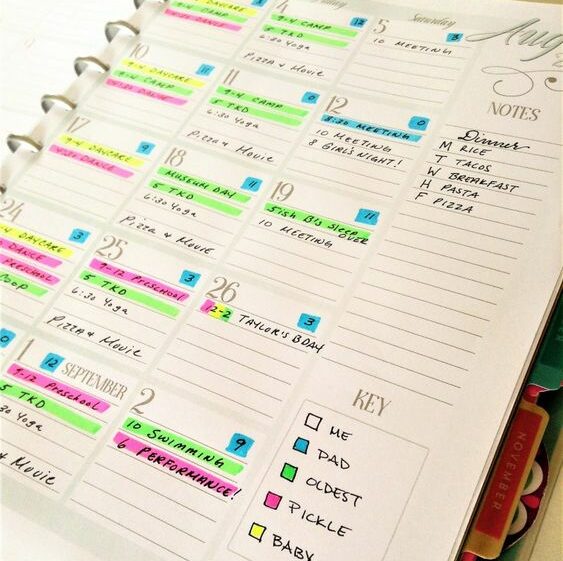 Saturday
Aug
9-4 CAMP
4:30 DANCE
4
12
9-4 CAMP
5 TKD
6:30 Yoga
Pizza & Movie
5
3
10 MEETING
10
11
9-4 DAYCARE
9-4 CAMP
4:30 DANCE
11
10
9-4 CAMP
5 TKD
6:30 Yoga
Pizza & Movie
12
0
8:30 MEETING
10 MEETING
8 GIRL'S NIGHT!
17
9
9-4 DAYCARE
4:30 DANCE
18
11
MUSEUM DAY
5 TKD
6:30 Yoga
Pizza & Movie
19
11
5ish B's Sleep
OVER
10 MEETING
24
3
9-4 DAYCARE
DANCE
PRESCHOOL
25
3
9-12 Preschool
5 TKD
6:30 Yoga
Pizza & Movie
26
3
12-2 TAYLOR'S BDAY
0
1 SEPTEMBER
12
9-12 Preschool
5 TKD
:30 Yoga
& Movie
2
9
10 SWIMMING
6 PERFORMANCE!
NOTES
Dinner
M RICE
T TACOS
W BREAKFAST
H PASTA
F PIZZA
KEY
ME
DAD
OLDEST
PICKLE
BABY
NOVEMBER